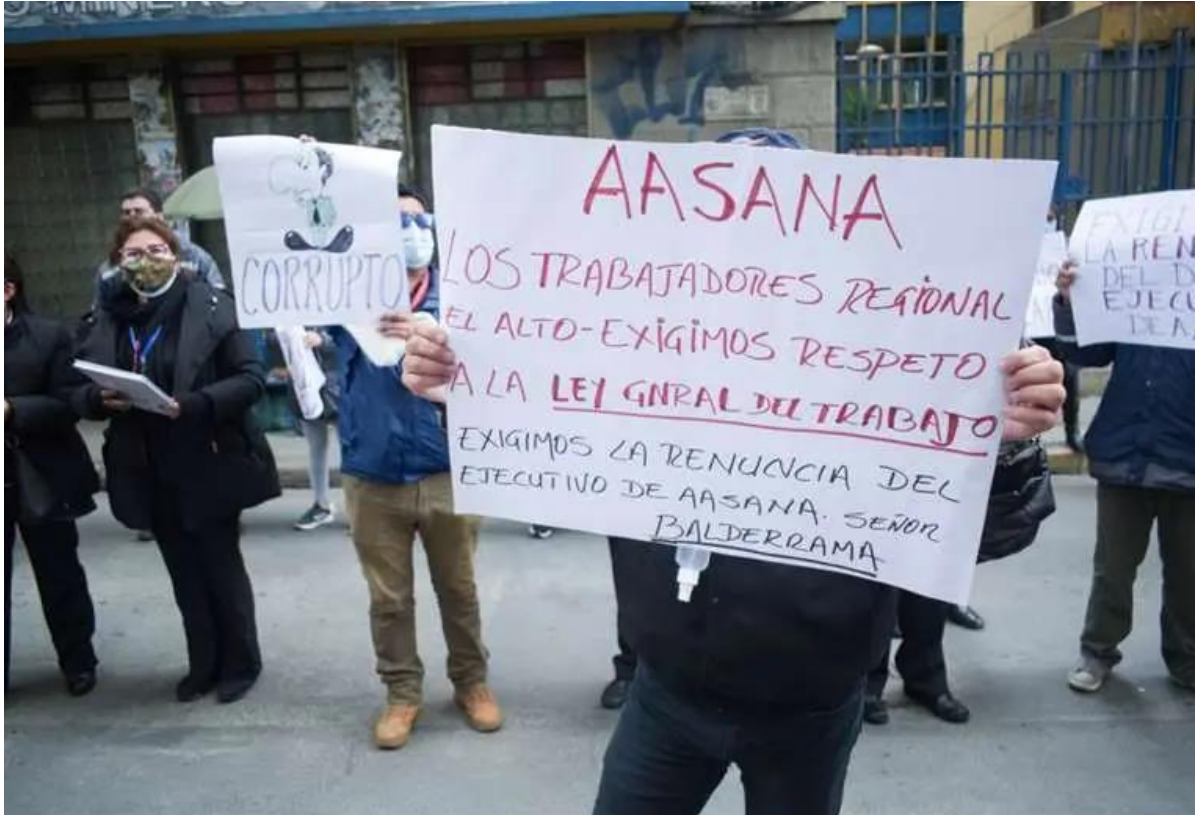 CORRUPTO
AASANA
LOS TRABAJADORES REGIONAL
EL ALTO-EXIGIMOS RESPETO
A LA LEY GNRAL DEL TRABAJO
EXIGIMOS LA RENUNCIA DEL
EJECUTIVO DE AASANA. SEÑOR
BALDERRAMA
LA
DEL